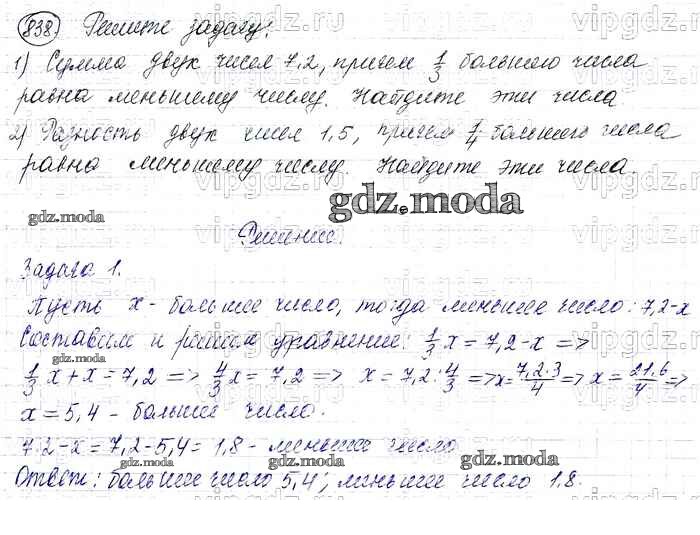 838. Решите задачу:
1) Сумма двух чисел 7,2, причем 1/3 большего числа
равна меньшему числу. Найдите эти числа.
2) Разность двух чисел 1,5, причем 1/4 большего числа
равна меньшему числу. Найдите эти числа.
gdz.moda
gdz.moda
Решение.
Задача 1.
Пусть x - большее число, тогда меньшее число: 7,2-x
Составим и решим уравнение: 1/3 x = 7,2-x =>
gdz.moda
1/3 x + x = 7,2 => 4/3 x = 7,2 => x = 7,2 : 4/3 => x = 7,2·3/4 => x = 21,6/4 =>
x = 5,4 - большее число.
7,2-x = 7,2-5,4 = 1,8 - меньшее число
gdz.moda gdz.moda gdz.moda
Ответ: большее число 5,4; меньшее число 1,8.